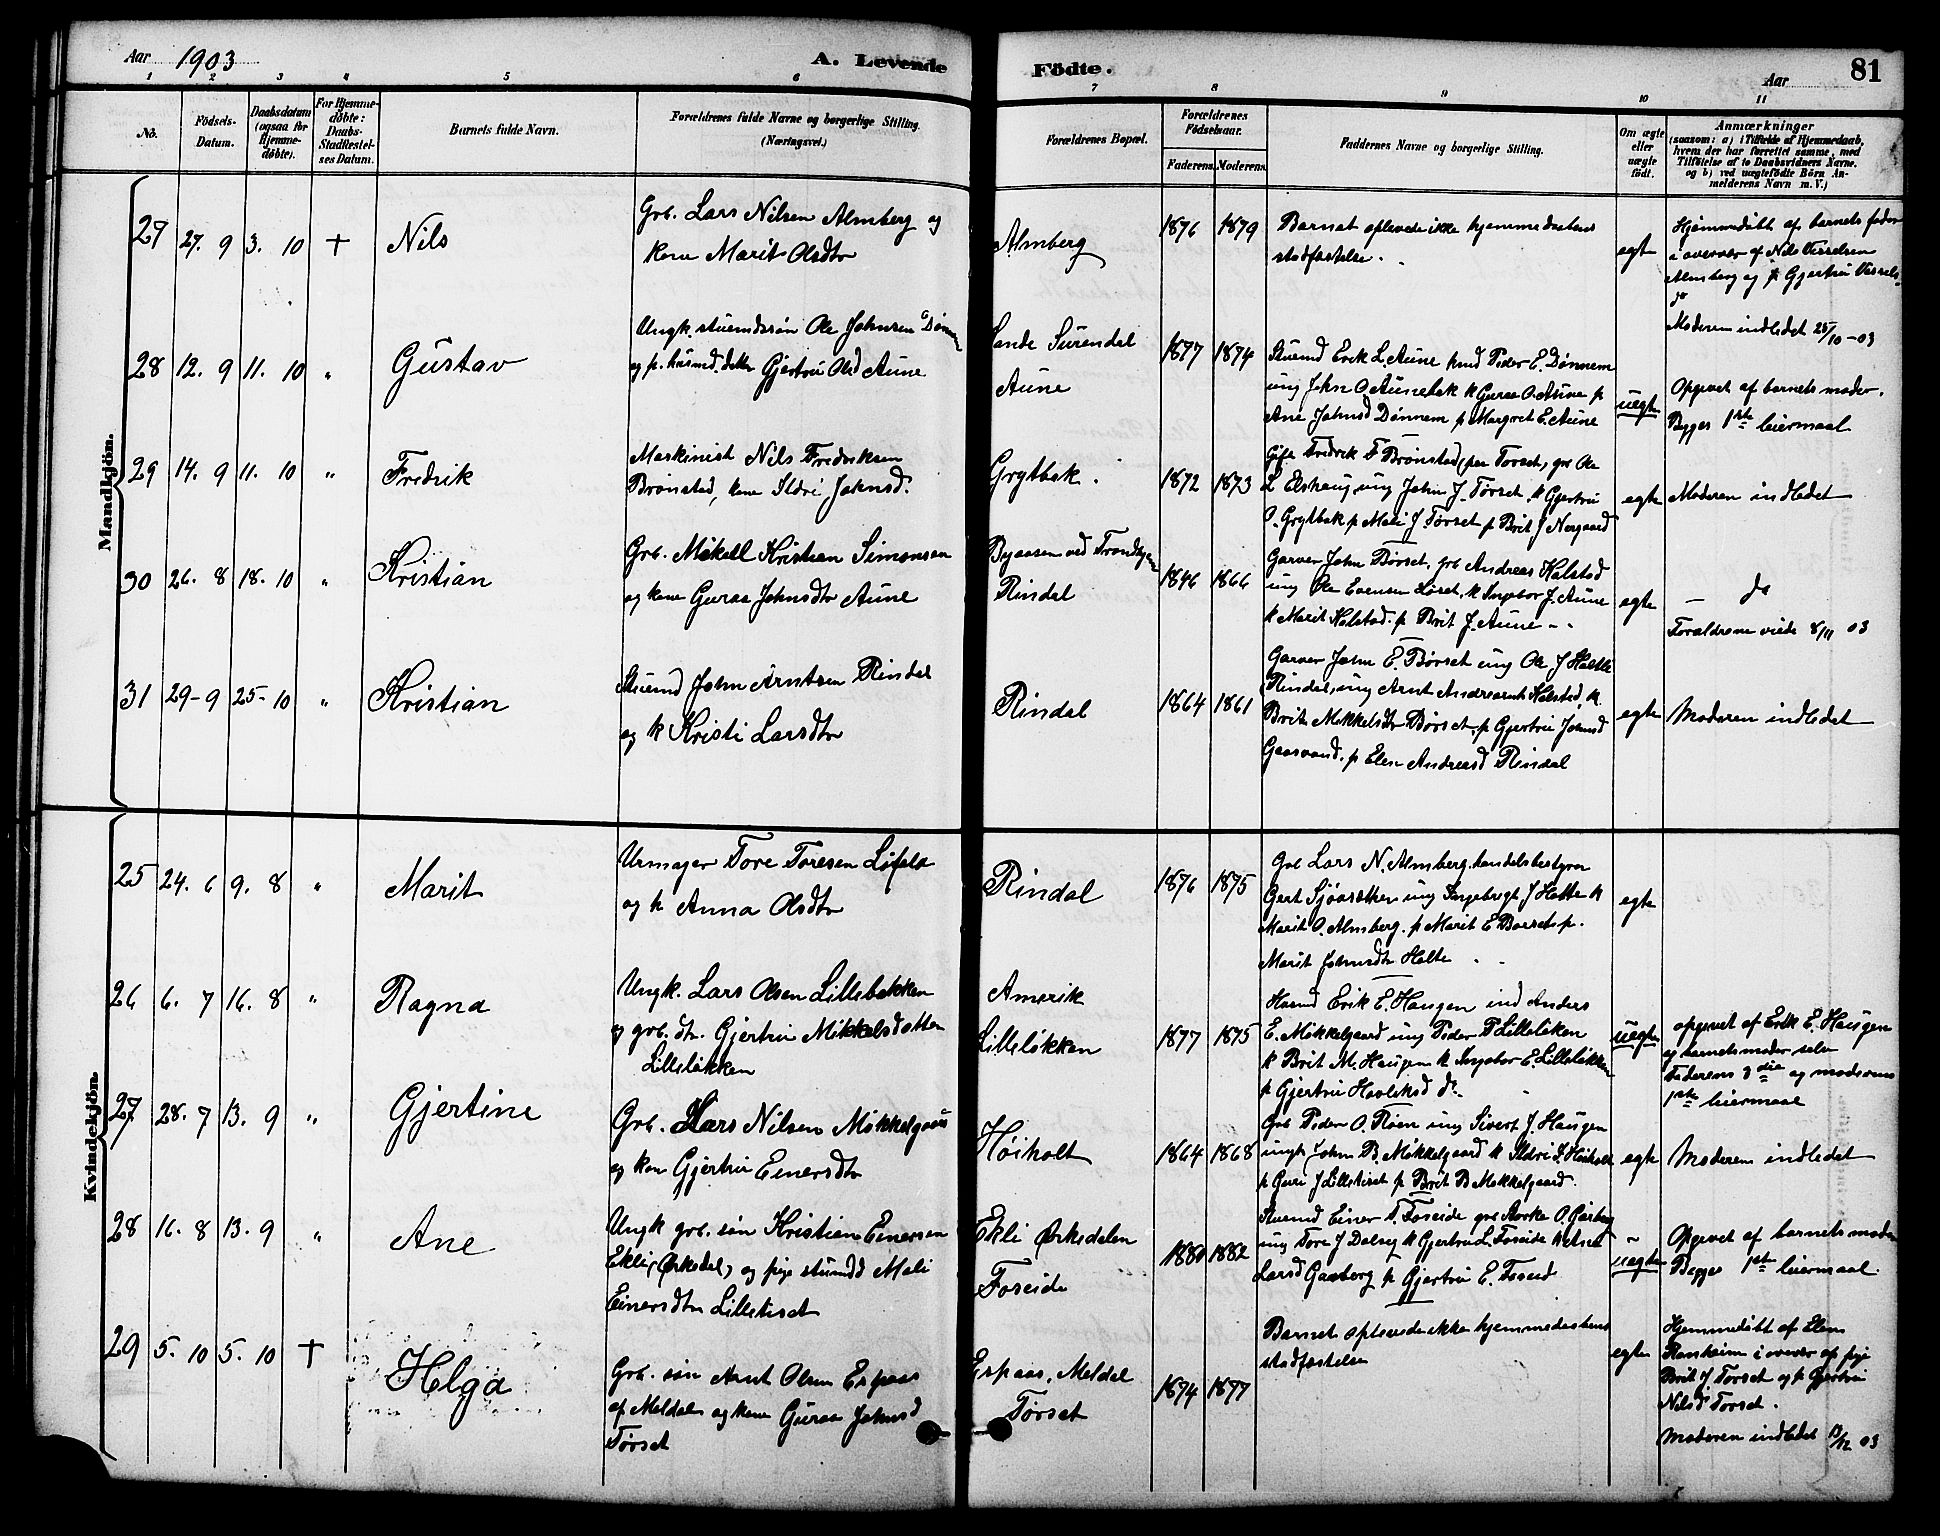 Aar 1903
A. Levende
Födte.
Aar
81
1 2 3 4 5 6 7 8 9 10 11
No.
Födsels-Datum.
Daabsdatum (ogsaa for Hjemme-döbte).
For Hjemme-döbte: Daabs-Stadfæstel-ses Datum.
Barnets fulde Navn.
Forældrenes fulde Navne og borgerlige Stilling. (Næringsvei.)
Forældrenes Bopæl.
Forældrenes Födselsaar.
Faderens. Moderens.
Faddernes Navne og borgerlige Stilling.
Om ægte eller uægte födt.
Anmærkninger
(saasom: a) i Tilfælde af Hjemmedaab, hvem der har forrettet samme, med Tilföielse af to Daabsvidners Navne. og b) ved uægtefödte Börn An-melderens Navn m. V.)
Mandkjön.
27 27. 9 3. 10 + Nils
Grb. Lars Nilsen Almberg og
kone Marit Olsdtr
Almberg
1876 1879
Barnet oplevede ikke hjemmedaabens
stadfæstelse.
egte
Hjemmedöbt af barnets fader
i overvær af Nils
Almberg og Gjertru
Moderen indledet 25/10-03
28 12. 9 11. 10 " Gustav
Ungk. stuemdssön Ole Johnsen
og p. husmd. datter Gjertru Olsd Aune
Sande Surendal
Aune
1877 1874
Stuemd Erik L. Aune hmd Peder E. Dønnem
ung John O Aunebak k Guraa O. Aune p
Ane Johnsd Dønnem p Margret E. Aune
uegte
Opgivet af barnets moder.
Begges 1ste leiermaal
29 14. 9 11. 10 " Fredrik
Maskinist Nils Fredriksen
Brønstad, kone Ildri Johnsd.
Grytbak.
1872 1873
Gift Fredrik F Brønstad, Torset, grb Ole
L Elshaug ung John J. Tørset, k Gjertru
O. Grytbak p Mali J. Tørset p Brit J Norgaard
egte
Moderen indledet
30 26. 8 18. 10 " Kristian
Grb. Mikall Kristian Simonsen
og kone Guraa Johnsdtr Aune
Byaasen ved Trondhjem
Rindal
1846 1866
Garver John Børset, grb Andreas Halstad
ung Ole Evensen Løset, k Ingebor J. Aune
k Marit Halstad. p Brit J. Aune
egte
— do
Foraldrene viede 8/11 03
31 29-9 25-10 " Kristian
Stuemd John Arntsen Rindal
og k Kristi Larsdtr
Rindal
1864 1861
Garver John E. Børset ung Ole J
Rindal, ung Arnt Andreasen Halstad, k.
Brit Mikkelsdtr Børset, p Gjertru Johnsd
Gaasvand. p Elen Andreasd Rindal
egte
Moderen indledet
Kvindekjön.
25 24. 6 9. 8 " Marit
Urmager Tore Toresen
og k Anna Olsdtr
Rindal
1876 1875
Grb Lars N. Almberg. handelsbestyrer
Gert Sjøasæther ung Ingebrigt J Halte k
Marit O. Almberg. p Marit E Børset p.
Marit Johnsdtr Halte
egte
26 6. 7 16. 8 " Ragna
Ungk. Lars Olsen Lillebakken
og grb. dtr. Gjertru Mikkelsdatter
Lilleløkken
Amerik
Lilleløkken
1877 1875
Husmd Erik E. Haugen ind Anders
E. Møkkelgaard ung Peder P Lilleløkken
k Brit M. Haugen k Ingebor E. Lilleløkken
p Gjertru do.
uegte
opgivet af Erik E. Haugen
og barnets moder selv
Faderens 3die og moderens
1ste leiermaal
27 28. 7 13. 9 " Gjertine
Grb. Lars Nilsen Møkkelgaard
og kone Gjertru Einersdtr
Høiholt
1864 1868
Grb Peder O. Røen ung Sivert J. Haugen
ungk John B. Møkkelgaard k Ildri I. Høiholt
p Guri J Lilletiset p Brit B Møkkelgaard.
egte
Moderen indledet
28 16. 8 13. 9 " Ane
Ungk grb. søn Kristian Einersen
Ekli, (Ørkedal) og pige stuemdd Mali
Einersdtr Lilletiset
Ekli Ørkedalen
Foseide
1880 1882
Stuemd Einer T. Foseide grb O. Garberg
ung Tore J Dalseg k Gjertru L. Foseide
Larsd Garberg p Gjertru E. Foseid
uegte
Opgivet af barnets moder
Begges 1ste leiermaal.
29 5. 10 5. 10 + Helga
Grb. søn Arnt Olsen Espaas
af Meldal og kone Guraa Johnsd
Tørset
Espaas, Meldal
Tørset
1874 1877
Barnet oplevede ikke hjemmedaabens
stadfæstelse
egte
Hjemmedöbt af Elen
Ranheim i overvær af pige
Brit J. Torset og p Gjertru
Nilsd Torset.
Moderen indledet 13/12 03